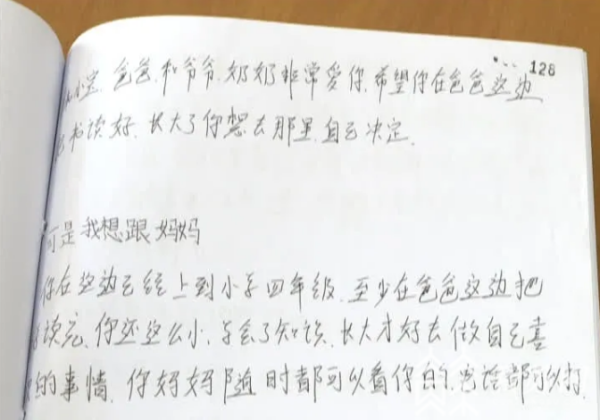 128
小宝.爸爸.和爷爷.奶奶非常爱你.希望你在爸爸这边
书读好.长大了你想去那里.自己决定.
可是我想跟妈妈
你在这边已经上到小学四年级.至少在爸爸这边把
读完.你还这么小,学会了知识.长大才好去做自己喜
的事情.你妈妈随时都可以看你的.电话都可以打.